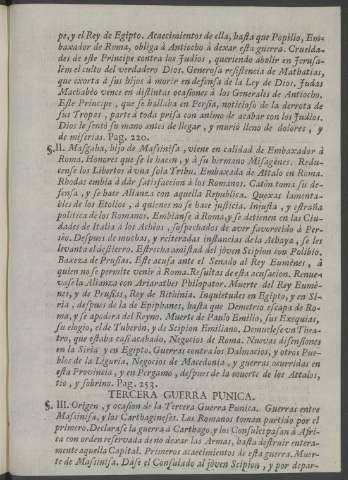 pe, y el Rey de Egipto. Acaecimientos de ella, hasta que Popilio, Em-
baxador de Roma, obliga à Antiocho à dexar esta guerra. Cruelda-
des de este Principe contra los Judios, queriendo abolir en Jerusa-
lèm el culto del verdadero Dios. Generosa resistencia de Mathatias,
que exorta à sus hijos à morir en defensa de la Ley de Dios. Judas
Machabèo vence en distintas ocasiones à los Generales de Antiocho.
Este Principe, que se hallaba en Persia, noticioso de la derrota de
sus Tropas, parte à toda prisa con animo de acabar con los Judios.
Dios le sentò su mano antes de llegar, y muriò lleno de dolores, y
de miserias. Pag. 220.
§. II. Masgaba, hijo de Masinissa, viene en calidad de Embaxador à
Roma. Honores que se le hacen, y à su hermano Misagènes. Redu-
cense los Libertos à una sola Tribu. Embaxada de Attalo en Roma.
Rhodas embia à dàr satisfaccion à los Romanos. Catòn toma su de-
fensa, y se hace Alianza con aquella Republica. Quexas lamenta-
bles de los Etolios, à quienes no se hace justicia. Injusta, y estraña
politica de los Romanos. Embianse à Roma, y se detienen en las Ciu-
dades de Italia à los Achèos, sospechados de aver favorecido à Per-
sèo. Despues de muchas, y reiteradas instancias de la Achaya, se les
levanta el destierro. Estrecha amistad del joven Scipion con Polibio.
Baxeza de Prusias. Este acusa ante el Senado al Rey Eumènes, à
quien no se permite venir à Roma. Resultas de esta acusacion. Renue-
vase la Alianza con Ariarathes Philopator. Muerte del Rey Eumè-
nes, y de Prusias, Rey de Bithinia. Inquietudes en Egipto, y en Si-
ria, despues de la de Epiphanes, hasta que Demetrio escapa de Ro-
ma, y se apodera del Reyno. Muerte de Paulo Emilio, sus Exequias,
su elogio, el de Tuberòn, y de Scipion Emiliano. Demuelese un Thea-
tro, que estaba casi acabado. Negocios de Roma. Nuevas disensiones
en la Siria y en Egypto. Guerras contra los Dalmacios, y otros Pue-
blos de la Liguria. Negocios de Macedonia, y guerras ocurridas en
esta Provincia, y en Pergamo, despues de la muerte de los Attalos,
tio, y sobrino. Pag. 253.
TERCERA GUERRA PUNICA.
§. III. Origen, y ocasion de la Tercera Guerra Punica. Guerras entre
Masinissa, y los Carthagineses. Los Romanos toman partido por el
primero. Declarase la guerra à Carthago, y los Consules pasan à Afri-
ca con orden reservada de no dexar las Armas, hasta destruir entera-
mente aquella Capital. Primeros acaecimientos de esta guerra. Muer-
te de Masinissa. Dàse el Consulado al jòven Scipion, y por depar-